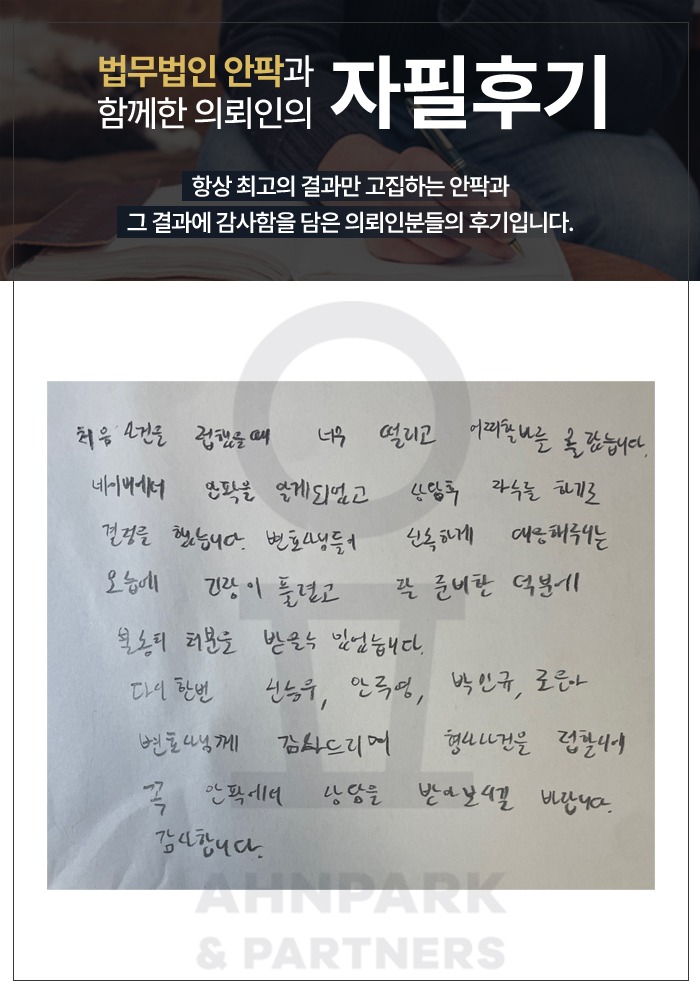 법무법인 안팍과
함께한 의뢰인의
자필후기
항상 최고의 결과만 고집하는 안팍과
그 결과에 감사함을 담은 의뢰인분들의 후기입니다.
처음 사건을 접했을때 너무 떨리고 어찌할바를 몰랐습니다.
네이버에서 안팍을 알게되었고 상담후 착수를 하기로
결정을 했습니다. 변호사님들이 신속하게 대응해주시는
모습에 긴장이 풀렸고 잘 준비한 덕분에
불송치 처분을 받을수 있었습니다.
다시 한번 신승우, 안주영, 박인규,
변호사님께 감사드리며 형사사건을 접할시에
꼭 안팍에서 상담을 받아보시길 바랍니다.
감사합니다.
AHNPARK
& PARTNERS